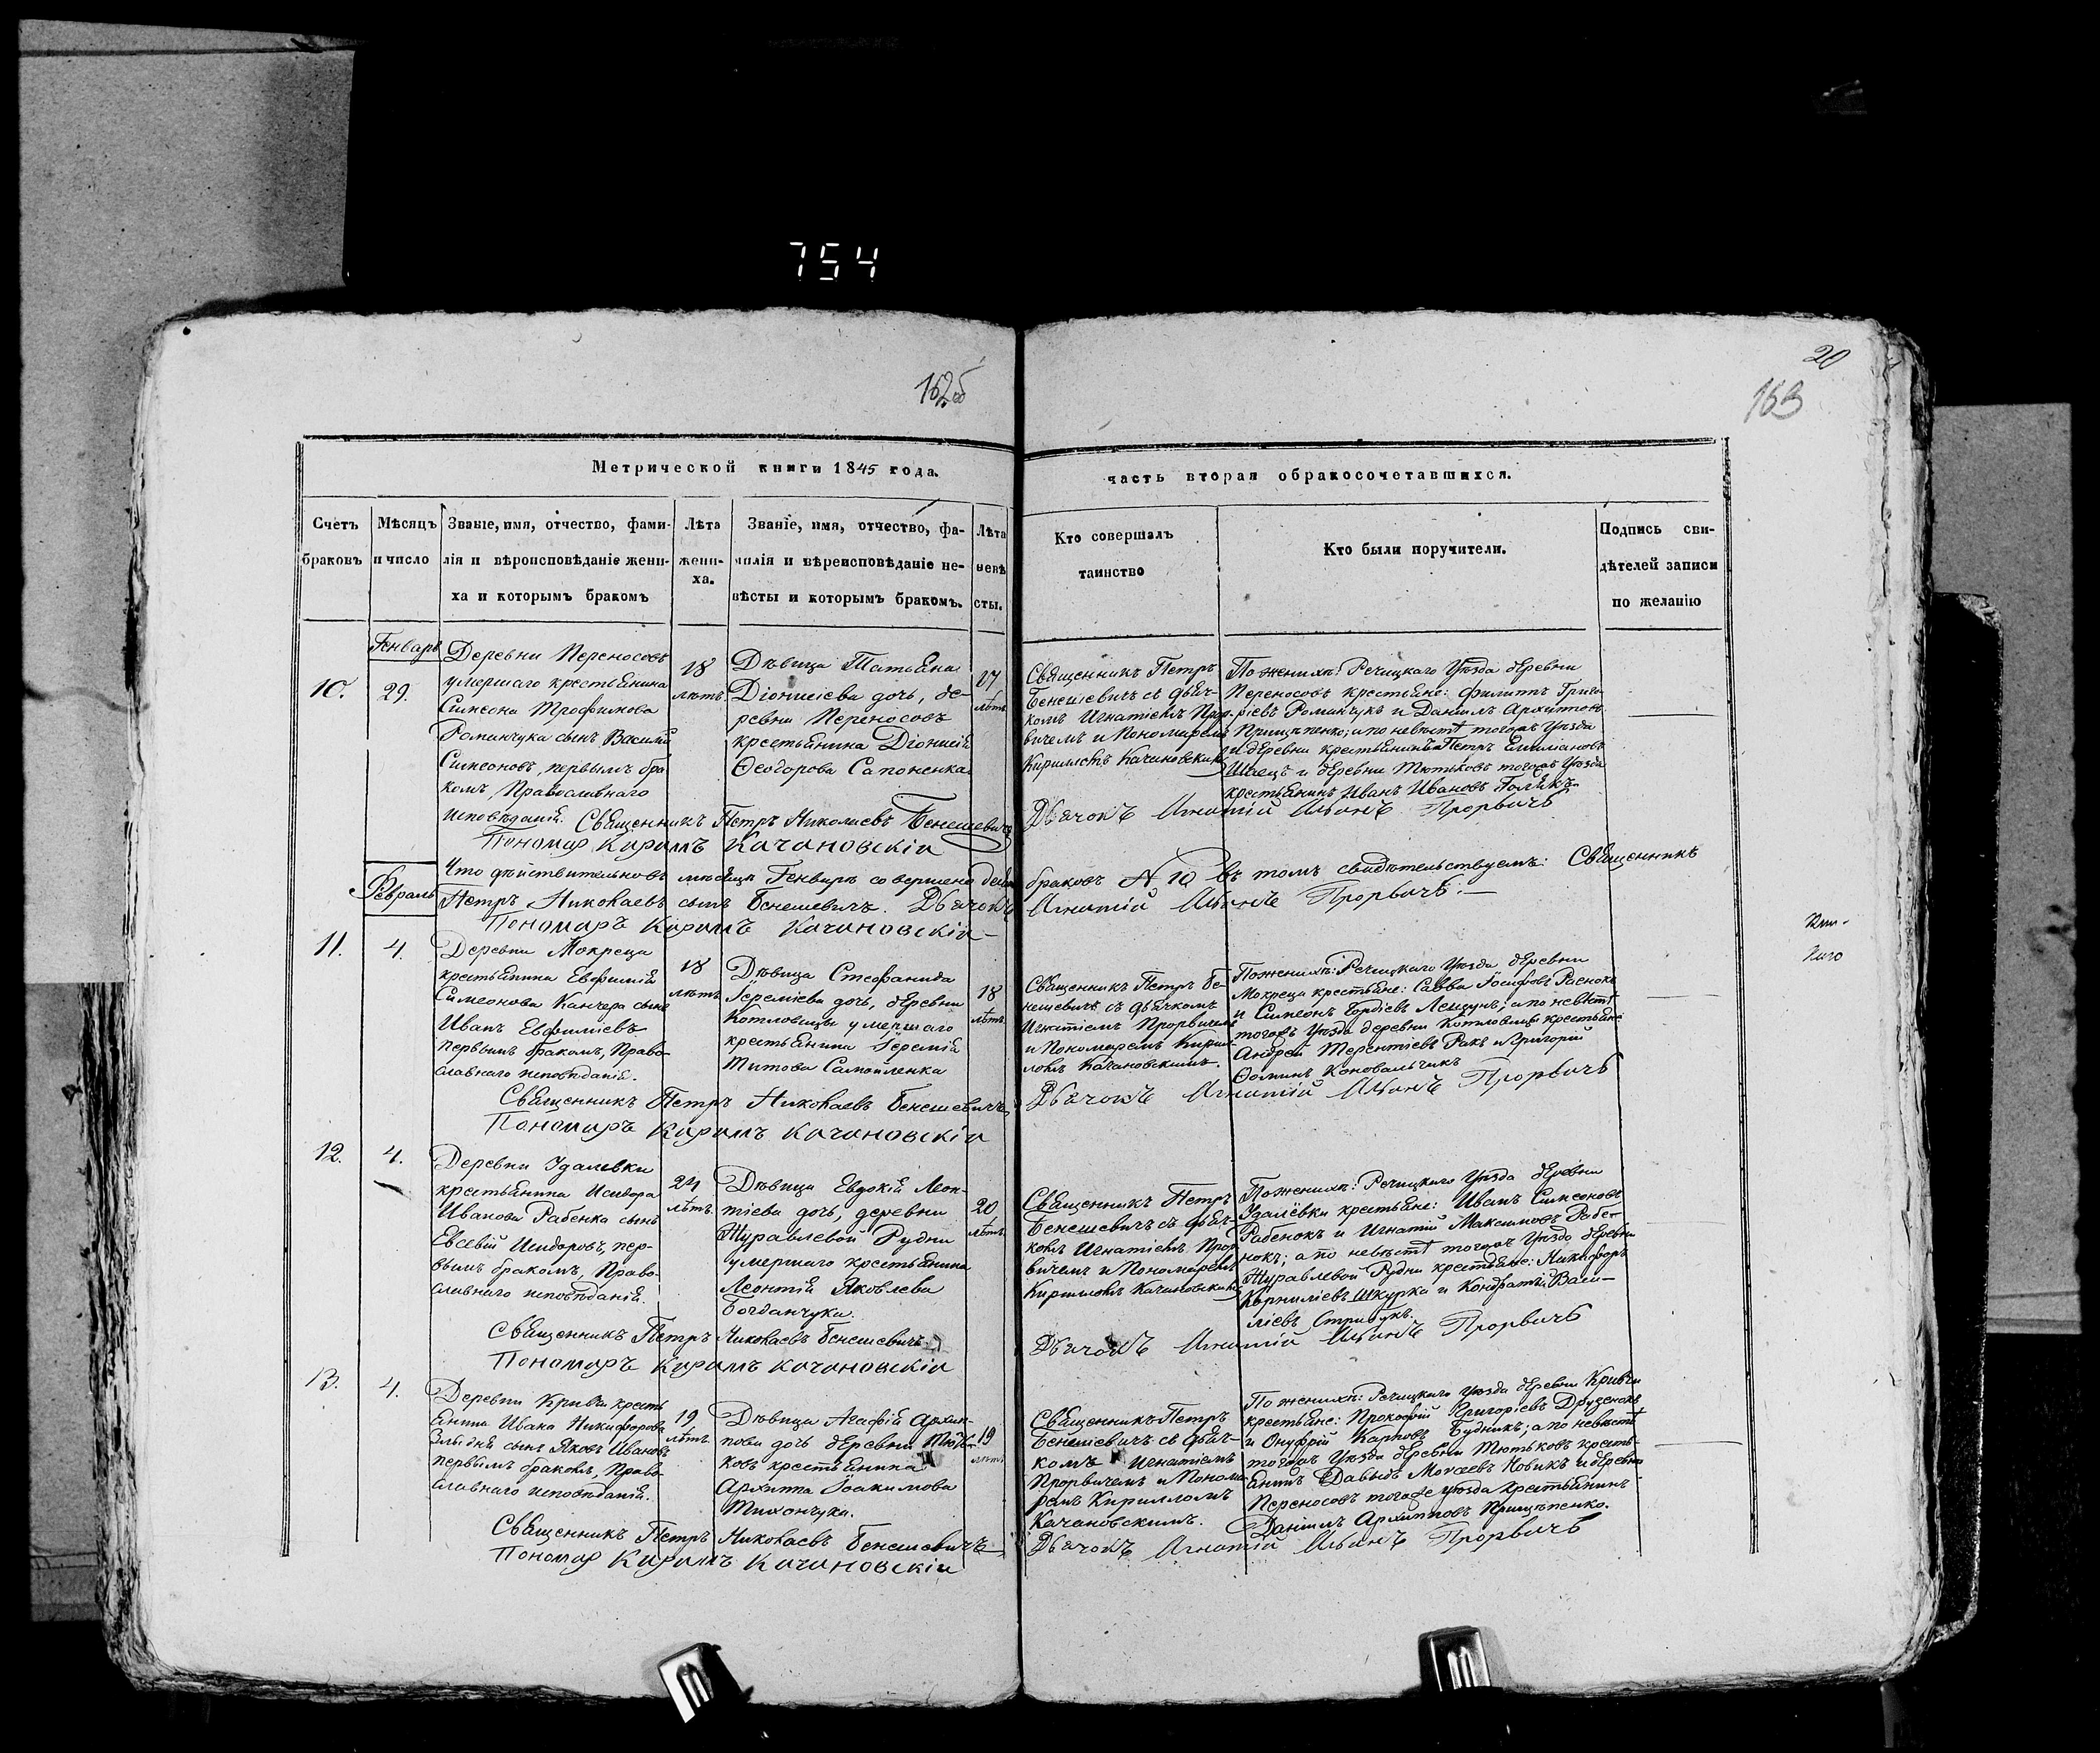 754
162об
20
163
Метрической книги 1845 года.
часть вторая обракосочетавшихся.
Счетъ браковъ
Мѣсяцъ и число
Званіе, имя, отчество, фами-
лія и вѣроисповѣданіе жени-
ха и которымъ бракомъ
Лѣта
жени-
ха.
Званіе, имя, отчество, фа-
милія и вѣреисповѣданіе не-
вѣсты и которымъ бракомъ.
Лѣта
невѣ
сты.
Кто совершалъ
таинство
Кто были поручители.
Подпись сви-
дѣтелей записи
по желанію
Генварь
10.
29.
Деревни Переносовъ
умершаго крестьянина
Симеона Трофимова
Романчука сынъ Василій
Симеоновъ, первымъ бра-
комъ, Православнаго
исповѣданія.
18
лѣтъ
Дѣвица Татьяна
Діонисіева дочь, де-
ревни Переносовъ
крестьянина Діонисія
Ѳеодорова Сапоненка
17
лѣтъ
Священникъ Петръ
Бенешевичъ съ дьяч-
комъ Игнатіемъ Прор-
вичемъ и Пономаремъ
Кирилломъ Качановскимъ
По женихѣ: Речицкаго Уѣзда деревни
Переносовъ крестьяне: Филиппъ Григо-
ріевъ Романчукъ и Даніилъ Архиповъ
Прищепенко; а по невѣстѣ тогожъ Уѣзда
и деревни крестьянинъ Петръ Емиліановъ
Швецъ и деревни Тютьковъ тогожъ Уѣзда
крестьянинъ Иванъ Ивановъ Голикъ
Священникъ Петръ Николаевъ Бенешевичъ
Дьячокъ Игнатій Ильинъ Прорвичъ
Пономар Кирилъ Качановскій
Что дѣйствительно въ мѣсяцѣ Генварѣ совершено десять
браковъ № 10 въ томъ свидѣтельствуемъ: Священникъ
Петръ Николаевъ сынъ Бенешевичъ. Дьячокъ
Игнатій Ильинъ Прорвичъ.
Пономаръ Кирилъ Качановскій
Февраль
11.
4.
Деревни Мокреца
крестьянина Евфимія
Симеонова Канчера сынъ
Иванъ Евфиміевъ
первымъ бракомъ, Право-
славнаго исповѣданія.
18
лѣтъ
Дѣвица Стефанида
Іереміева дочь, деревни
Котловицы умершаго
крестьянина Іереміи
Титова Самойленка
18
лѣтъ
Священникъ Петръ Бе-
нешевичъ съ дьячкомъ
Игнатіемъ Прорвичемъ
и Пономаремъ Кирил-
ломъ Качановскимъ.
По женихѣ: Речицкаго Уѣзда деревни
Мокреца крестьяне: Савва Іосифовъ
и Симеонъ Гордіевъ; а по невѣстѣ
тогожъ Уѣзда деревни Котловицы крестьяне
Андрей Терентіевъ Ракъ и Григорій
Ѳоминъ Коновальчикъ
Священникъ Петръ Николаевъ Бенешевичъ
Дьячокъ Игнатій Ильинъ Прорвичъ
Пономаръ Кирилъ Качановскій
12.
4.
Деревни Удалевки
крестьянина Исидора
Иванова Рабенка сынъ
Евсевій Исидоровъ, пер-
вымъ бракомъ, Право-
славнаго исповѣданія.
24
лѣтъ.
Дѣвица Евдокія Леон-
тіева дочь, деревни
Журавлевой Рудни
умершаго крестьянина
Леонтія Яковлева
Богданчука
20
лѣтъ
Священникъ Петръ
Бенешевичъ съ дьяч-
комъ Игнатіемъ Прор-
вичемъ и Пономаремъ
Кирилломъ Качановскимъ
По женихѣ: Речицкаго Уѣзда деревни
Удалёвки крестьяне: Иванъ Симеоновъ
Рабенокъ и Игнатій Максимовъ Рабе-
нокъ; а по невѣстѣ тогожъ Уѣзда деревни
Журавлевой Рудни крестьяне: Никифоръ
Корниліевъ Шкурка и Кондратій Васи-
ліевъ Стрибукъ.
Священникъ Петръ Николаевъ Бенешевичъ
Дьячокъ Игнатій Ильинъ Прорвичъ
Пономаръ Кирилъ Качановскій
13.
4.
Деревни Кривчи кресть
янина Ивана Никифорова
Злыдня сынъ Яковъ Ивановъ
первымъ бракомъ, Право-
славнаго исповѣданія.
19
лѣтъ
Дѣвица Агафія Архип-
пова дочь деревни Тють-
ковъ крестьянина
Архиппа Іоакимова
Тихончука.
19
лѣтъ
Священникъ Петръ
Бенешевичъ съ дьяч-
комъ Игнатіемъ
Прорвичемъ и Понома-
ремъ Кирилломъ
Качановскимъ.
По женихѣ: Речицкаго Уѣзда деревни Кривчи
крестьяне: Прокофій Григоріевъ Друзенокъ
и Онуфрій Карповъ Будникъ; а по невѣстѣ
тогожъ Уѣзда деревни Тютьковъ кресть-
янинъ Давыдъ Моисеевъ Новикъ и деревни
Переносовъ тогоже уѣзда крестьянинъ
Даніилъ Архипповъ Прищепенко.
Священникъ Петръ Николаевъ Бенешевичъ
Дьячокъ Игнатій Ильинъ Прорвичъ
Пономар Кирилъ Качановскій